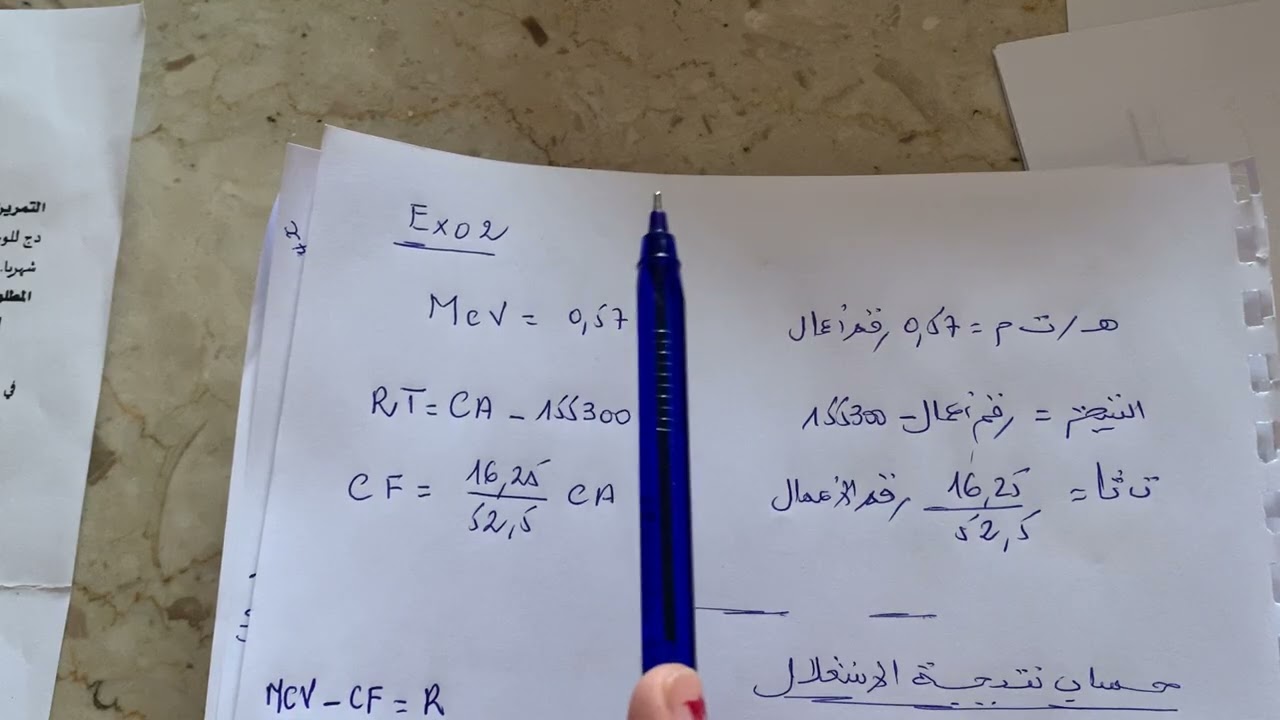 التمرين
دج للو
شهريا.
المطلو
في
Exo 2
MCV = 0,57
RT = CA - 155300
CF = 16,25/52,5 CA
MCV - CF = R
هـ/ت م = 0,57 رقم أعمال
النتيجة = رقم أعمال - 155300
ت ثا = 16,25/52,5 رقم الأعمال
حساب نتيجة الاستغلال